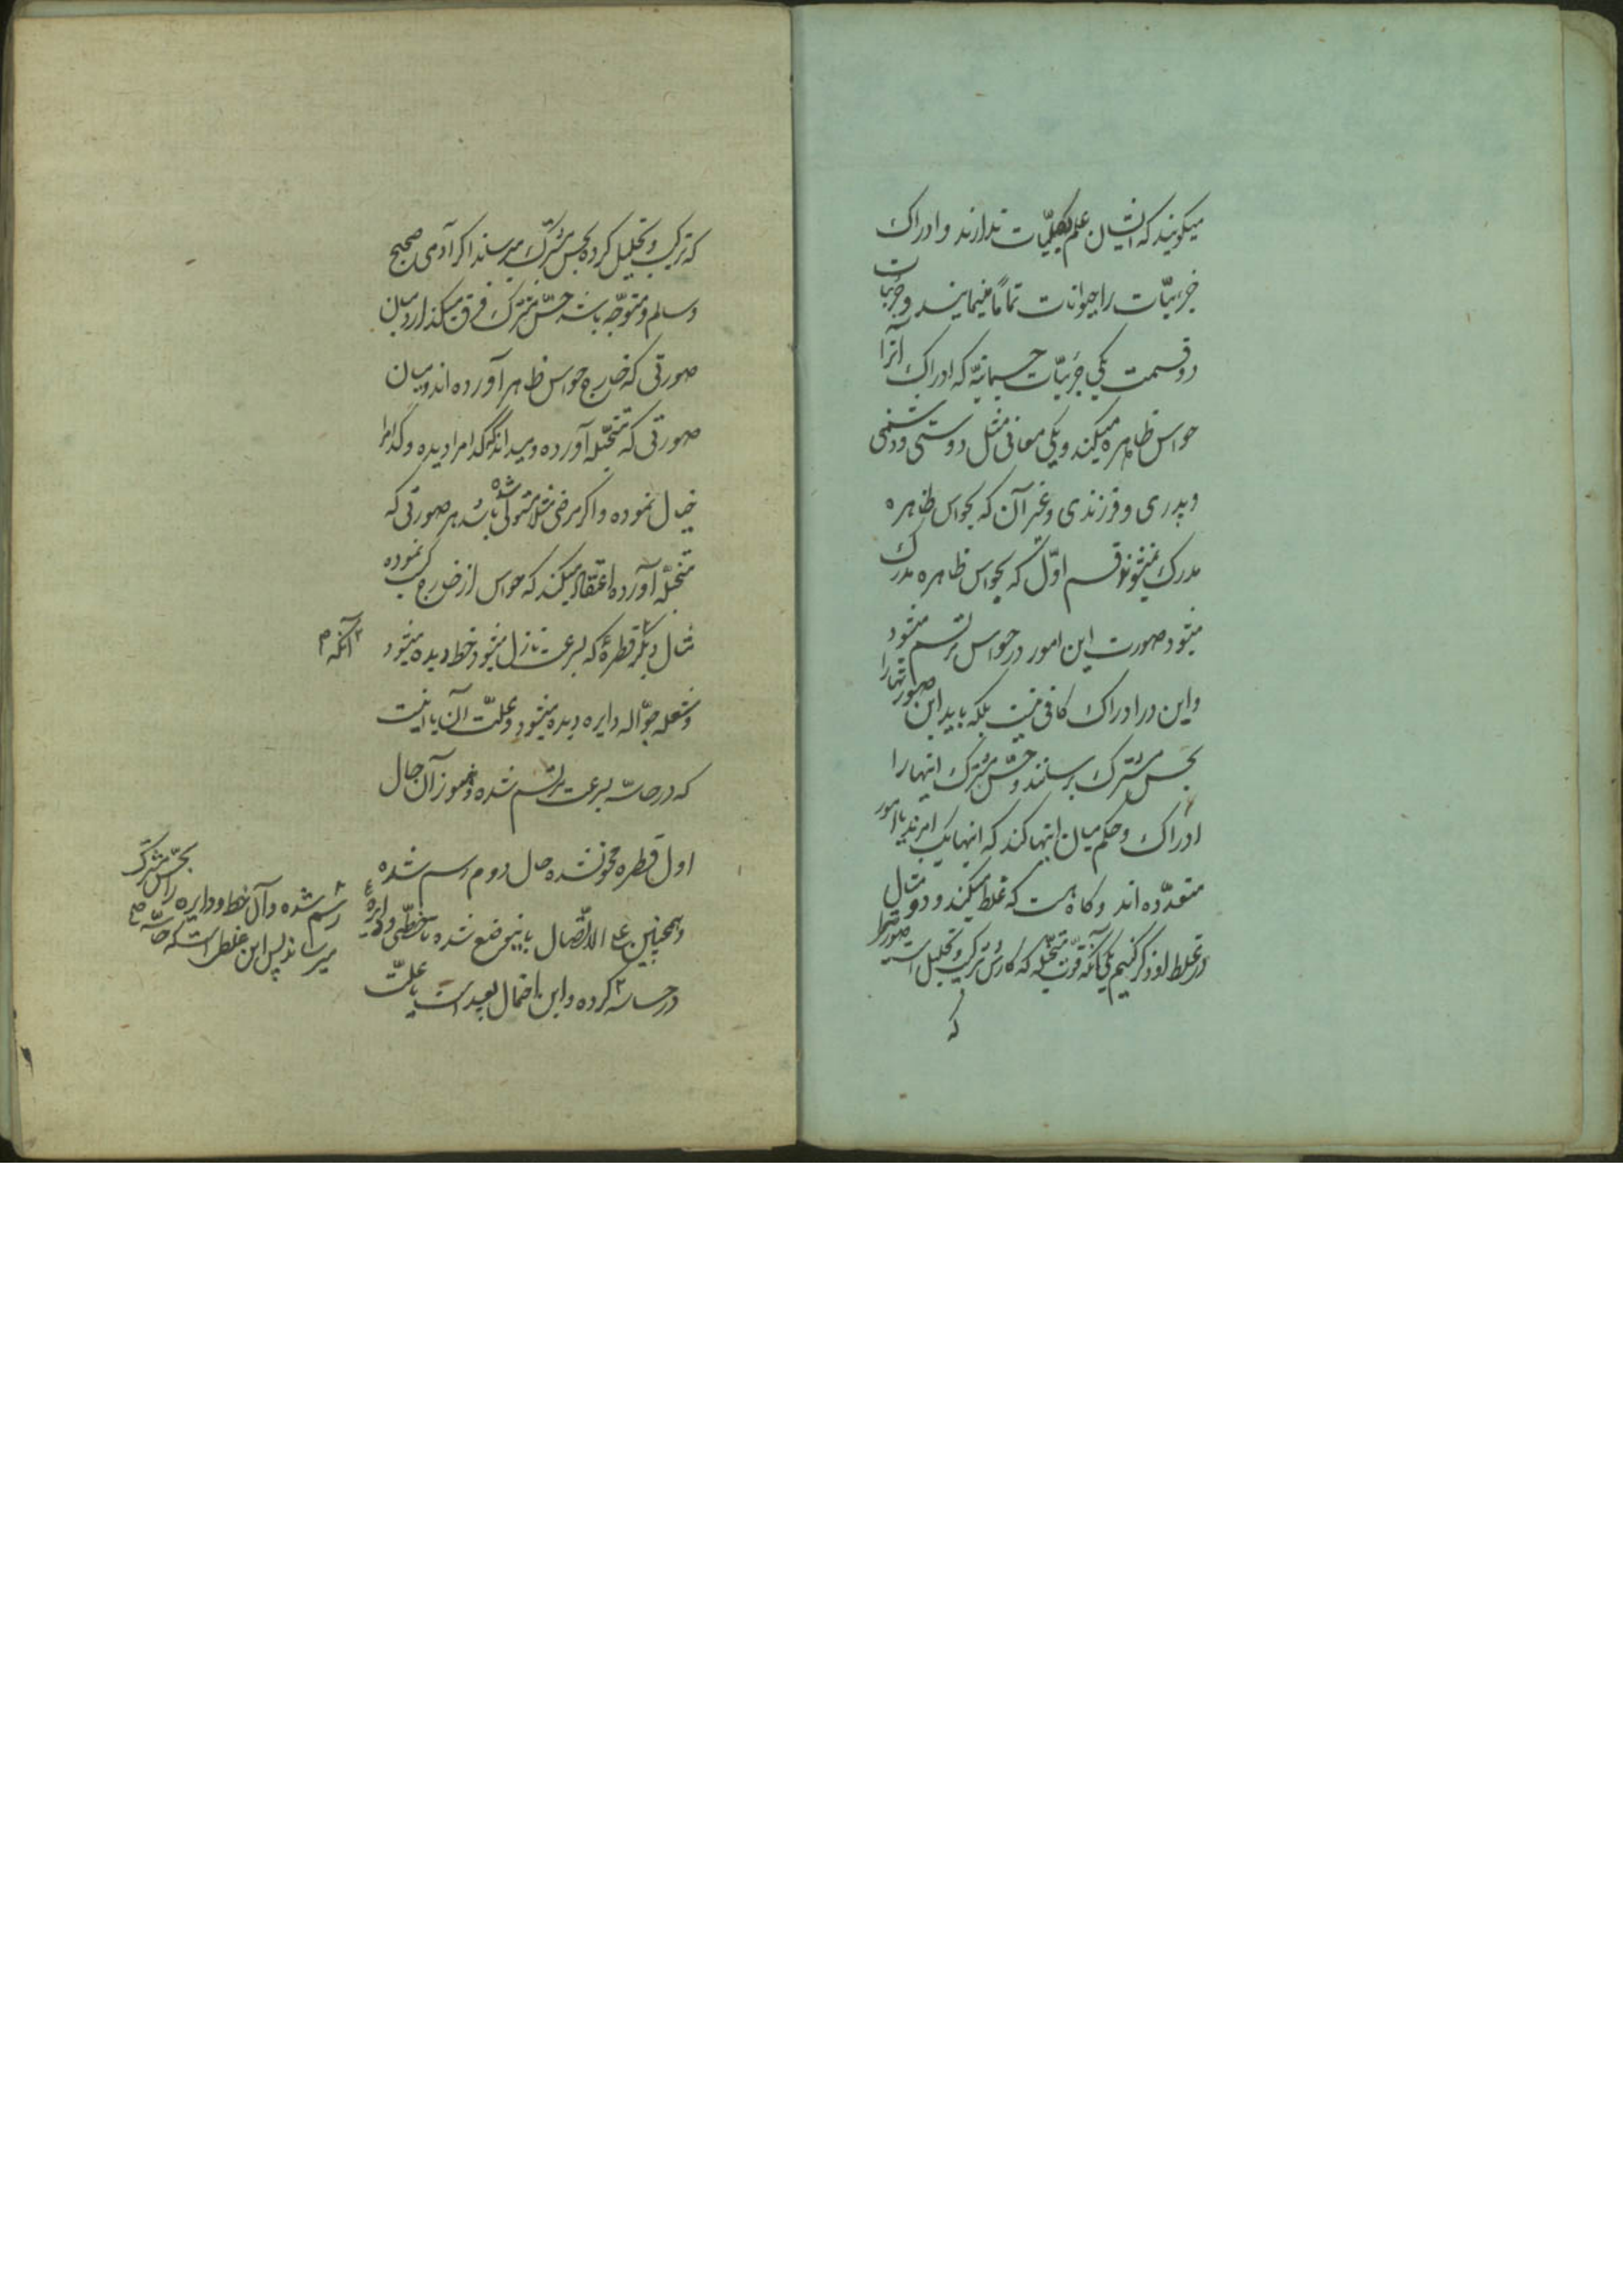 میکویند که ایشان علم بکلیّات ندارند و ادراک
جزئیّات را حیوانات تماماً مینمایند و جزئیات
دو قسمت یکی جزئیّات جسمانیّه که ادراک آنرا
حواس ظاهره میکند و یکی معانی مثل دوستی و دشمنی
و پدری و فرزندی و غیر آن که بحواس ظاهره
مدرک نمیشوند قسم اوّل که بحواس ظاهره مدرک
میشود صورت این امور در حواس مرتسم میشود
و این در ادراک کافی نیست بلکه باید این صورتها را
بحس مشترک برسانند و حسّ مشترک اینها را
ادراک و حکم میان اینها کند که اینها یک امرند یا امور
متعدّده اند و کاه هست که غلط میکند و دو مثال
در غلط او ذکر کنیم یکی آنکه قوّت متخیّله که کارش ترکیب و تحلیل است صورتها
که
که ترکیب و تحلیل کرده بحس مشترک میرساند اکر آدمی صحیح
و سالم و متوجّه باشد حسّ مشترک فرق میکذارد میان
صورتی که از خارج حواس ظاهر آورده اند و میان
صورتی که متخیّله آورده و میداند که کدام را دیده و کدام را
خیال نموده و اکر مرضی مثلا مستولی شده باشد هر صورتی که
متخیّله آورده اعتقاد میکند که حواس از خارج کسب نموده
مثال دیکر قطرهٔ که بسرعت نازل میشود خط دیده میشود
آنکه
و شعله جوّاله دایره دیده میشود و علّت آن یا اینست
که در حاسّه بسرعت مرتسم شده و هنوز آن حال
اول قطره محو نشده حال دوم رسم شده
و همچنین علی الاتّصال باینموضع شده تا خطّی و دایره
در حاسه کرده و این احتمال بعید است یا علّت
بحسّ مشترک
رسم شده و آن خط و دایره را
میرساند پس این غلط است که حاسّه